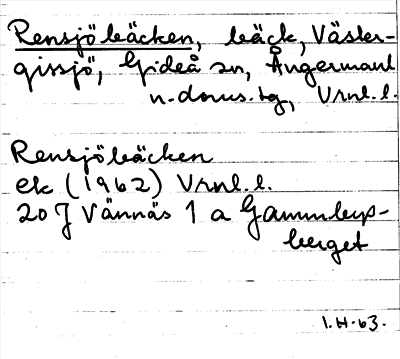 Rensjöbäcken, bäck, Väster-
gissjö, Gideå sn, Ångermanl
n. doms. tg, Vrnl. l.
Rensjöbäcken
ek (1962) Vrnl. l.
20 J Vännäs 1 a Gammbyp-
berget
1. H. 63.